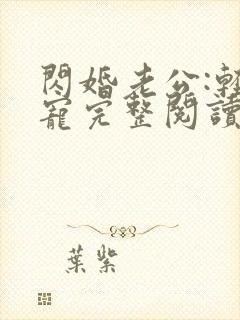 閃婚老公:輕
寵完整閱讀
葉紫